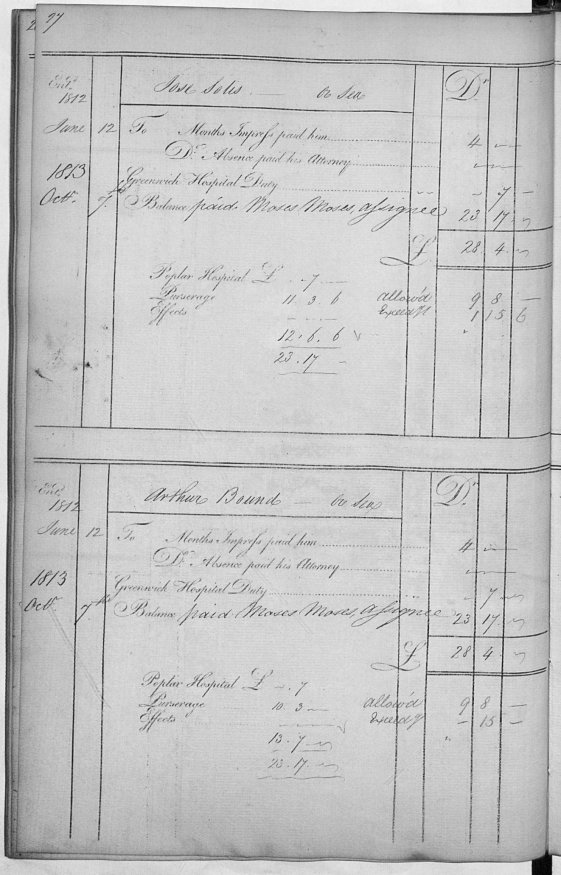 97
Entd. Jose Solis — Ord Sea Dr
1812
June 12 To Months Impress paid him 4 " "
Do. Absence paid his Attorney " "
1813 Greenwich Hospital Duty " 7 "
Octr. 7th Balance paid Moses Moses, assignee 23 17 "
£ 28 4 "
Poplar Hospital £ " 7 "
Purserage 11 3 6 allow'd 9 8 —
Effects Exceed'g 1 15 6
12. 6. 6
23. 17 "
Entd. Arthur Bound — Ord Sea Dr
1812
June 12 To Months Impress paid him 4 " "
Do. Absence paid his Attorney " "
1813 Greenwich Hospital Duty " 7 "
Octr. 7th Balance paid Moses Moses assignee 23 17 "
£ 28 4 "
Poplar Hospital £ " 7
Purserage 10 3 — allow'd 9 8 —
Effects Exceed'g — 15 —
13. 7 "
23. 17. "